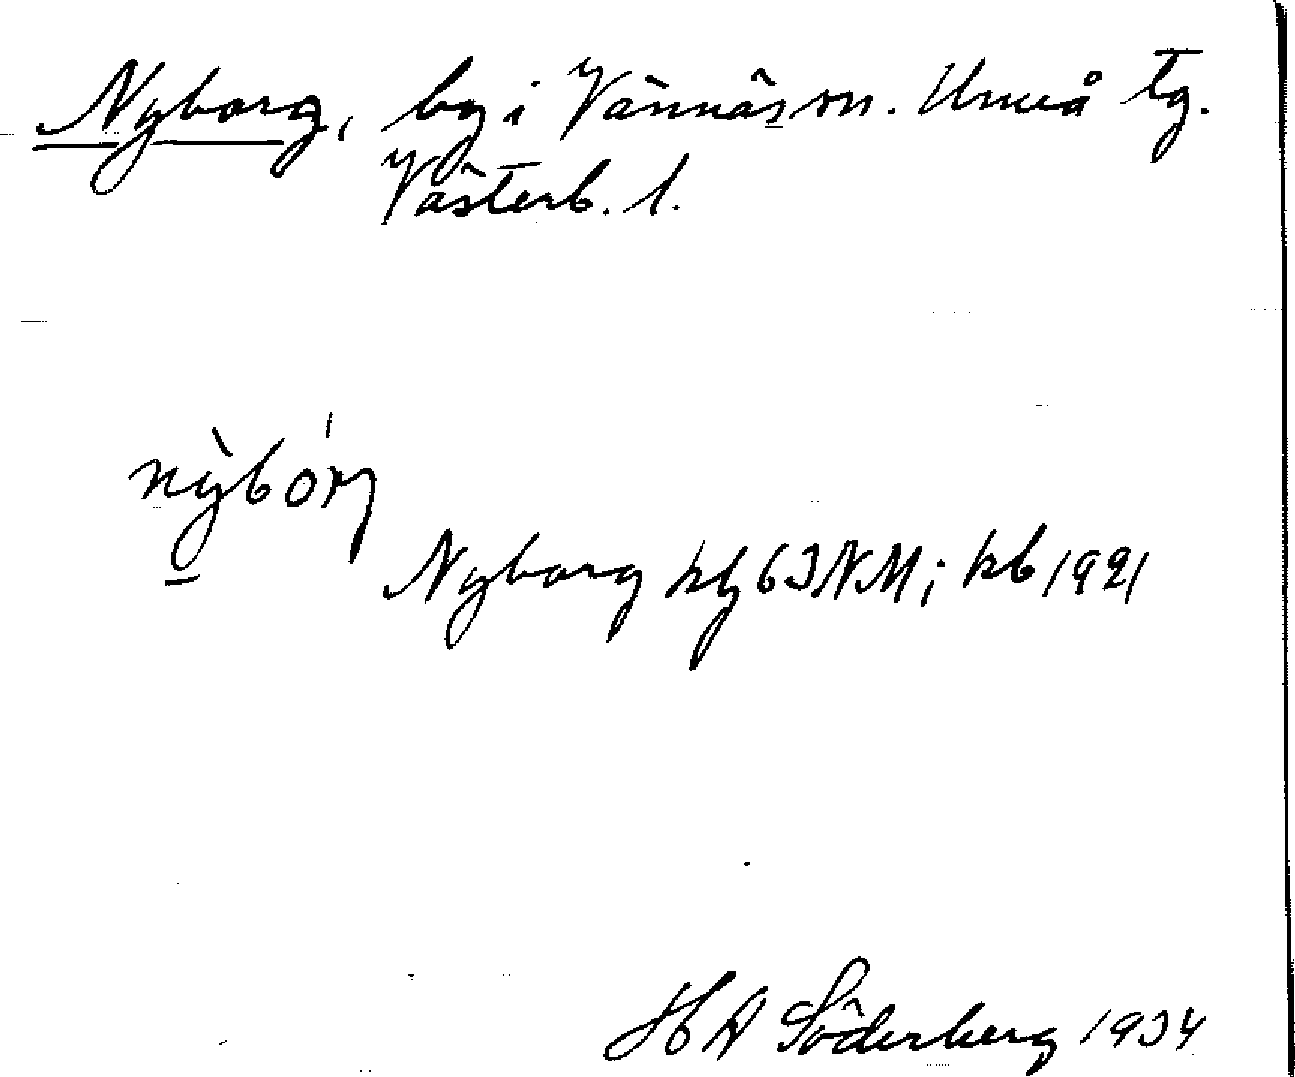 Nyborg, by i Vännäs sn. Umeå tg.
Västerb. l.
nỳbórj
Nyborg kbl 63 NM; kb 1921
H A Söderberg 1934